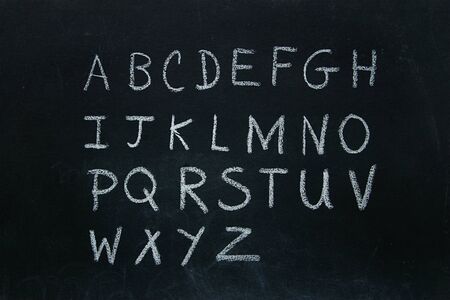 ABCDEFGH
IJKLMNO
PQRSTUV
WXYZ